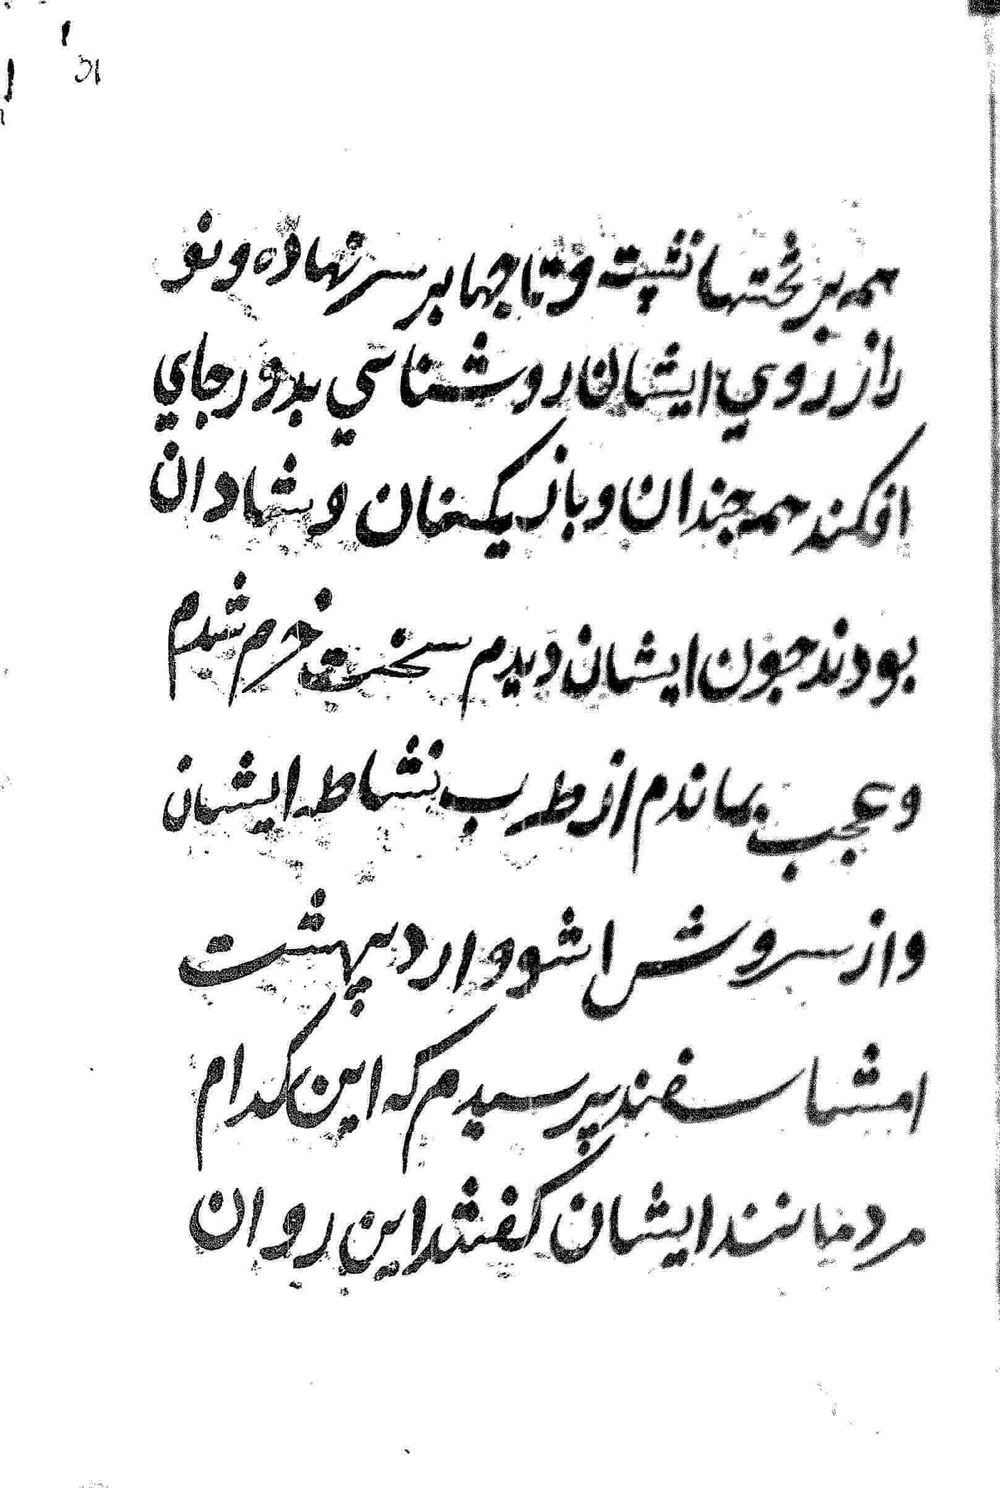 همه بر تختها نشسته و تاجها بر سر نهاده و نو
راز روي ایشان روشناسي بدور جاي
افکند همه جندان و بازیکنان و شادان
بودند جون ایشان دیدم سخت خرم شدم
و عجب بماندم از طرب نشاط ایشان
و از سروش اشو و اردیبهشت
امشاسفند پرسیدم که این کدام
مردمانند ایشان کفتند این روان